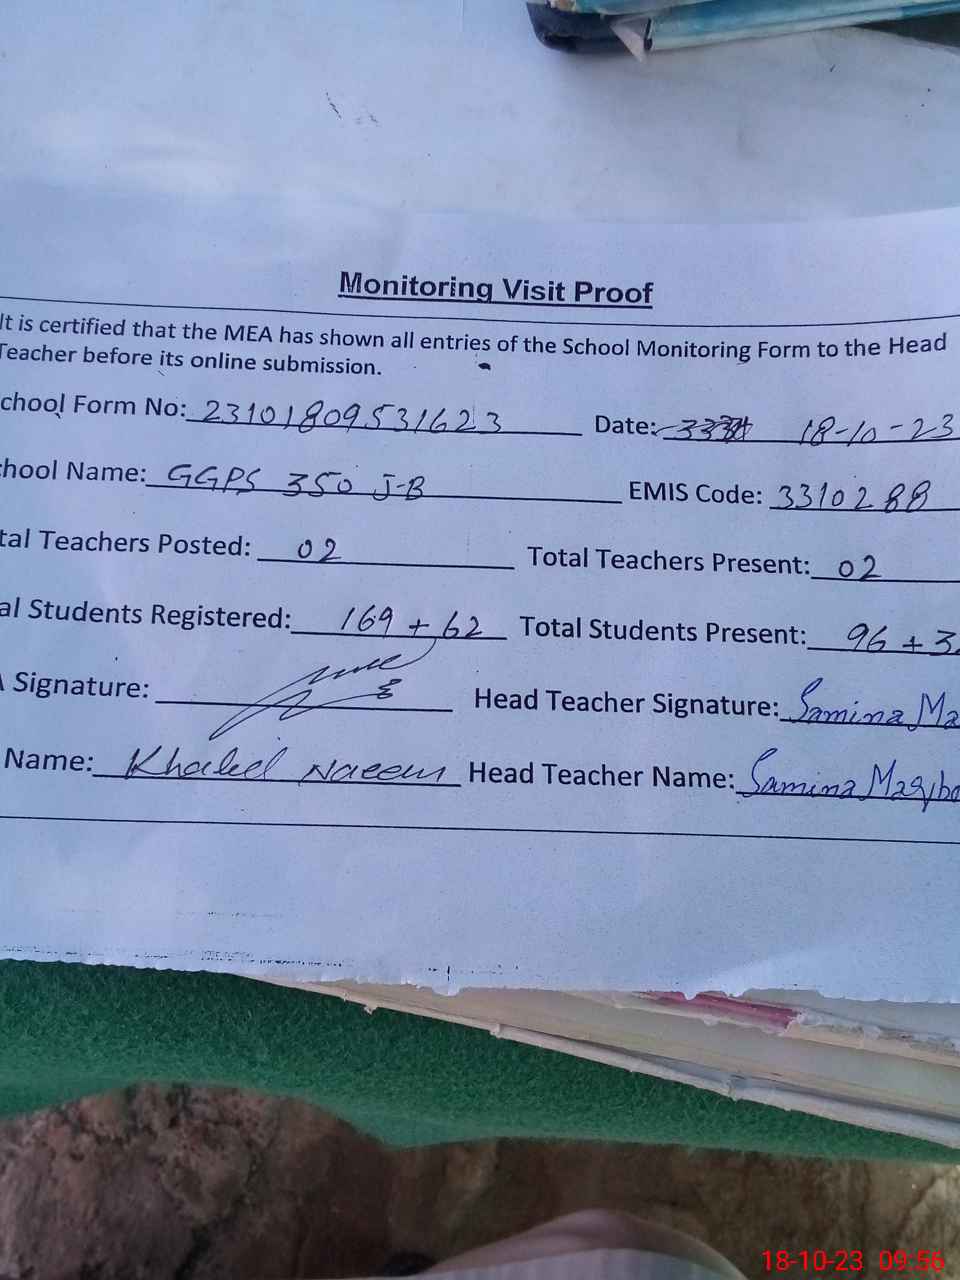 Monitoring Visit Proof
It is certified that the MEA has shown all entries of the School Monitoring Form to the Head
Teacher before its online submission.
chool Form No: 23101809531623 Date: 18-10-23
hool Name: GGPS 350 J-B EMIS Code: 3310288
tal Teachers Posted: 02 Total Teachers Present: 02
al Students Registered: 169 + 62 Total Students Present: 96 + 3
Signature: Head Teacher Signature: Samina Ma
Name: Khaleel Naeem Head Teacher Name: Samina Maqbo
18-10-23 09:56